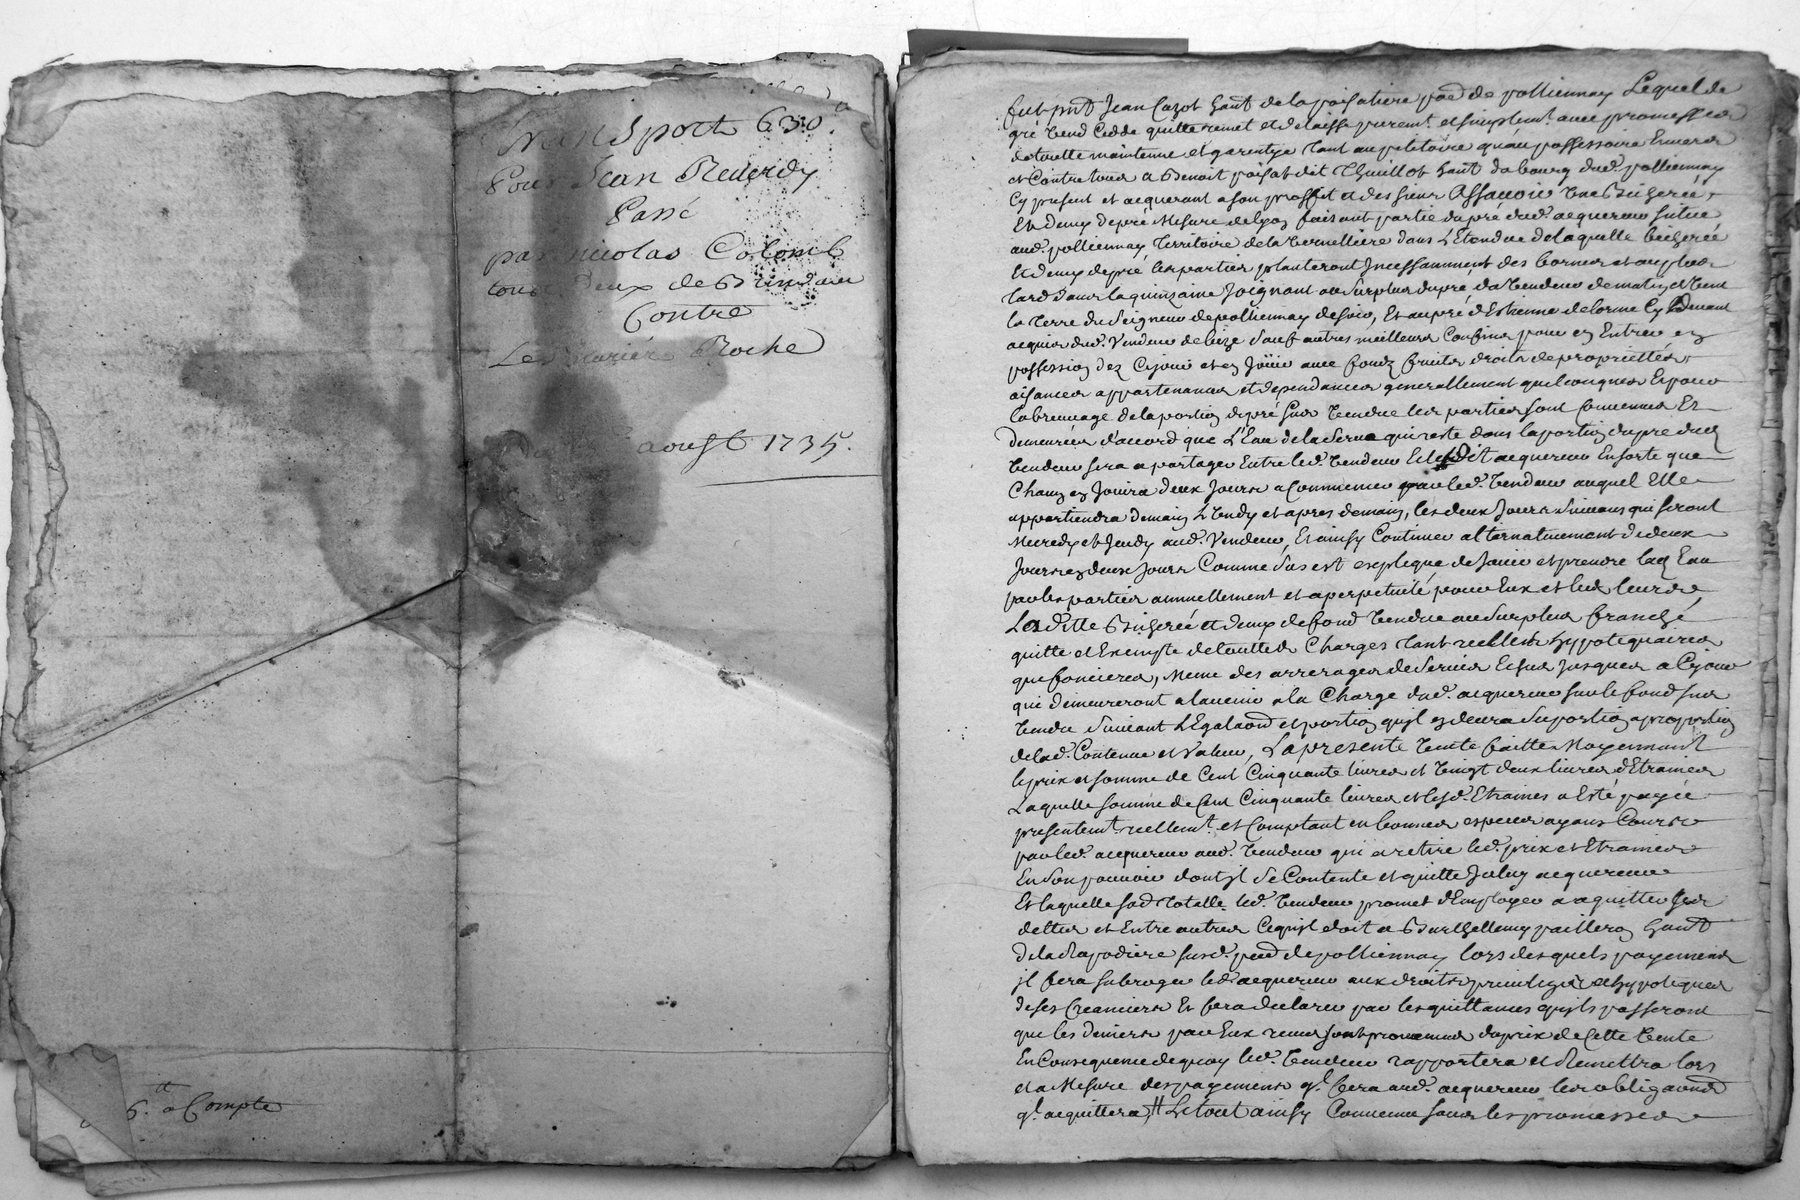 Transport 630
Pour Jean Reverdy
Passé
par nicolas Colomb
tous deux de Brindas
Contre
Les mariés Roche
aoust 1735.
6.tt a Compte
fut pnt Jean Cazot hant de la poisatiere psse de polliennay Lequel de
gré Vend Cedde quitte remet et delaisse puremt. et simplemt. avec promesse de
de toutte maintenue et garentye tant au petitoire qu'au possessoire Envers
et Contre tous a Benoit poisat dit Thuillot hant du bourg dud. polliennay
Cy present et acquerant a son proffit et des siens Assavoir Une Bicherée
Et demy de pré Mesure de lyon faisant partie du pré dud. situé
aud. polliennay territoire de la Vernelliere dans L'Etendue de laquelle bicherée
Et demy de pré les parties planteront Incessamment des bornes et au plus
tard dans la quinzaine Joignant au surplus du pré du Vendeur de matin et Vent
la terre du Seigneur de polliennay de soir, Et au pré d'Estienne delorme Cy devant
acquis dud. Vendeur de bize Sauf autres meilleurs Confins pour en Entrer en
possession dez Cejourd et en Joüir avec fondz fruits droits de proprietés
aisances appartenances et dependances generallement quelconques Et pour
labreuvage de la portion de pré sus Vendue les parties sont Convenues Et
demeurées d'accord que L'Eau de la Serve qui reste dans la portion du pré dud
Vendeur sera a partager Entre led. Vendeur Et ledit acquereur Ensorte que
Chacun en Jouira deux Jours a Commencer par led. Vendeur auquel Elle
appartiendra demain Lundy et apres demain, les deux Jours suivans qui seront
Mecredy et Jeudy aud. Vendeur, Et ainsy Continuer alternativement de deux
Jours en deux Jours Comme sus est expliqué de Jouir et prendre lad Eau
par les parties annuellement et a perpetuité pour Eux et les leurs
Laditte Bicherée et demy de fond Vendue au surplus franche
quitte et Exempte de touttes Charges tant reelles hypotequaires
que foncieres, Meme des arrerages de servis Echus Jusques a Cejour
qui demeureront a lavenir a la Charge dud. acquereur sur le fond sus
Vendu suivant L'Egalaõn et portion quil en devra supporter a proportion
de lad. Contenue et Valeur, La presente Vente faitte Moyennant
le prix et somme de Cent Cinquante livres et Vingt deux livres d'Etraines
Laquelle somme de Cent Cinquante livres et lesd. Etraines a Esté payée
presentemt. reellemt. et Comptant en bonnes especes ayans Cours
par led. acquereur aud. Vendeur qui a retiré led. prix et Etraines
En son pouvoir dont il se Contente et quitte Iceluy acquereur
Et laquelle sôe totalle led. Vendeur promet d'Employer a aquitter ses
dettes et Entre autres Ce quil doit a Barthellemy pailleron hant
de la Rapodiere susd. psse de polliennay lors desquels payemens
il fera subroger led. acquereur aux droits privileges et hypoteques
de ses Creanciers Et fera declarer par les quittances qu'ils passeront
que les deniers par Eux receus sont provenus du prix de Cette Vente
En Consequence dequoy led. Vendeur rapportera et Remettra lors
et a Mesure des payemens ql. fera aud. acquereur les obligaõns
ql. acquittera, Le tout ainsy Convenu sous les promesses